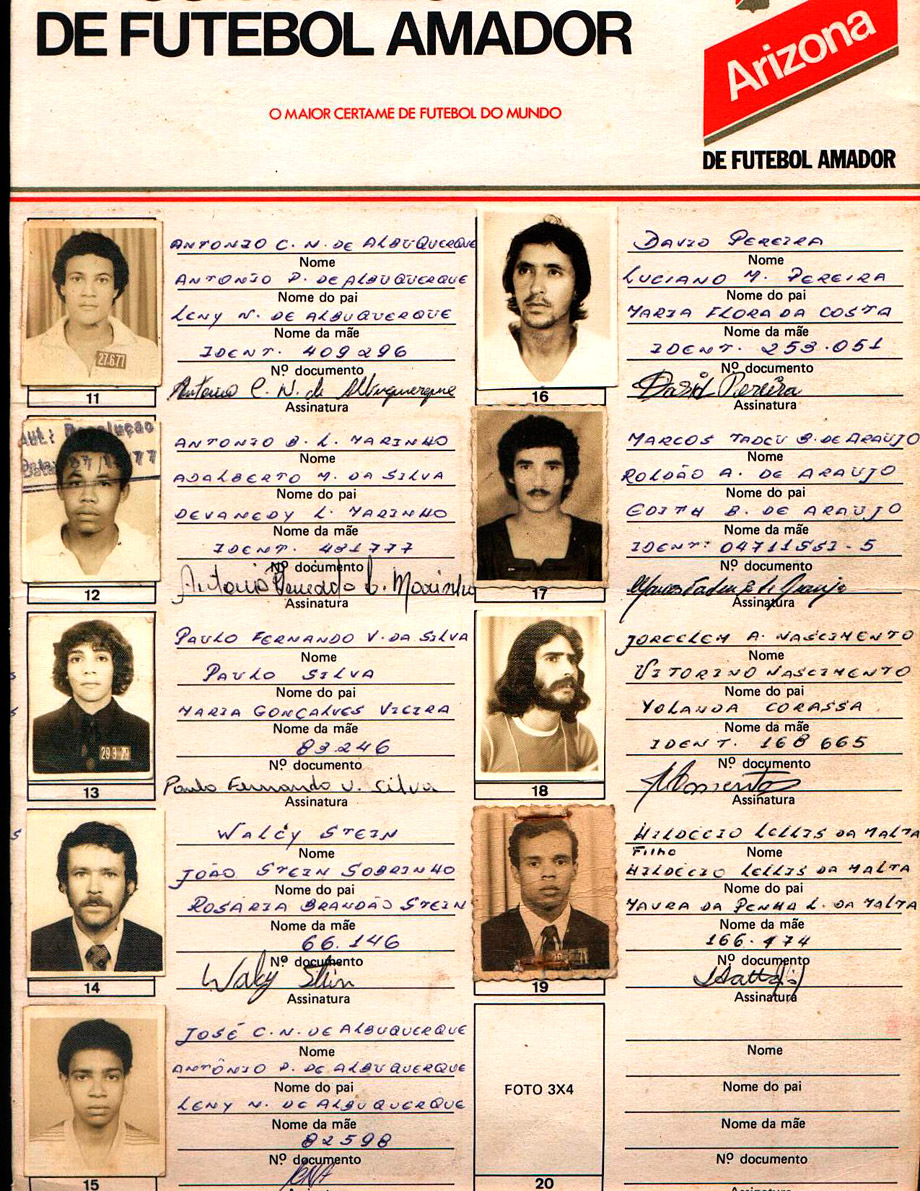 DE FUTEBOL AMADOR
O MAIOR CERTAME DE FUTEBOL DO MUNDO
Arizona
DE FUTEBOL AMADOR
ANTONIO C. N. DE ALBUQUERQUE
Nome
ANTONIO P. DE ALBUQUERQUE
Nome do pai
LENY N. DE ALBUQUERQUE
Nome da mãe
IDENT. 409296
Nº documento
Antonio C. N. de Albuquerque
Assinatura
27.6.77
11
ANTONIO B. L. MARINHO
Nome
ADALBERTO M. DA SILVA
Nome do pai
DEVANEDY L. MARINHO
Nome da mãe
IDENT. 431777
Nº documento
Antonio L. Marinho
Assinatura
12
PAULO FERNANDO V. DA SILVA
Nome
PAULO SILVA
Nome do pai
MARIA GONÇALVES VIEIRA
Nome da mãe
83246
Nº documento
Paulo Fernando V. Silva
Assinatura
13
WALCY STEIN
Nome
JOÃO STEIN SOBRINHO
Nome do pai
ROSÁRIA BRANDÃO STEIN
Nome da mãe
66.146
Nº documento
Walcy Stein
Assinatura
14
JOSÉ C. N. DE ALBUQUERQUE
Nome
ANTÔNIO P. DE ALBUQUERQUE
Nome do pai
LENY N. DE ALBUQUERQUE
Nome da mãe
82598
Nº documento
15
DAVID PEREIRA
Nome
LUCIANO M. PEREIRA
Nome do pai
MARIA FLORA DA COSTA
Nome da mãe
IDENT. 253.051
Nº documento
David Pereira
Assinatura
16
MARCOS TADEU B. DE ARAUJO
Nome
ROLDÃO A. DE ARAUJO
Nome do pai
EDITH B. DE ARAUJO
Nome da mãe
IDENT: 04711551-5
Nº documento
Marcos Tadeu B de Araujo
Assinatura
17
JORCELEM A. NASCIMENTO
Nome
VITORINO NASCIMENTO
Nome do pai
YOLANDA CORASSA
Nome da mãe
IDENT. 168665
Nº documento
Assinatura
18
HILDÉCIO LELLIS DA MALTA
Filho
Nome
HILDÉCIO LELLIS DA MALTA
Nome do pai
MAURA DA PENHA L. DA MALTA
Nome da mãe
166.474
Nº documento
Assinatura
19
FOTO 3X4
Nome
Nome do pai
Nome da mãe
Nº documento
20